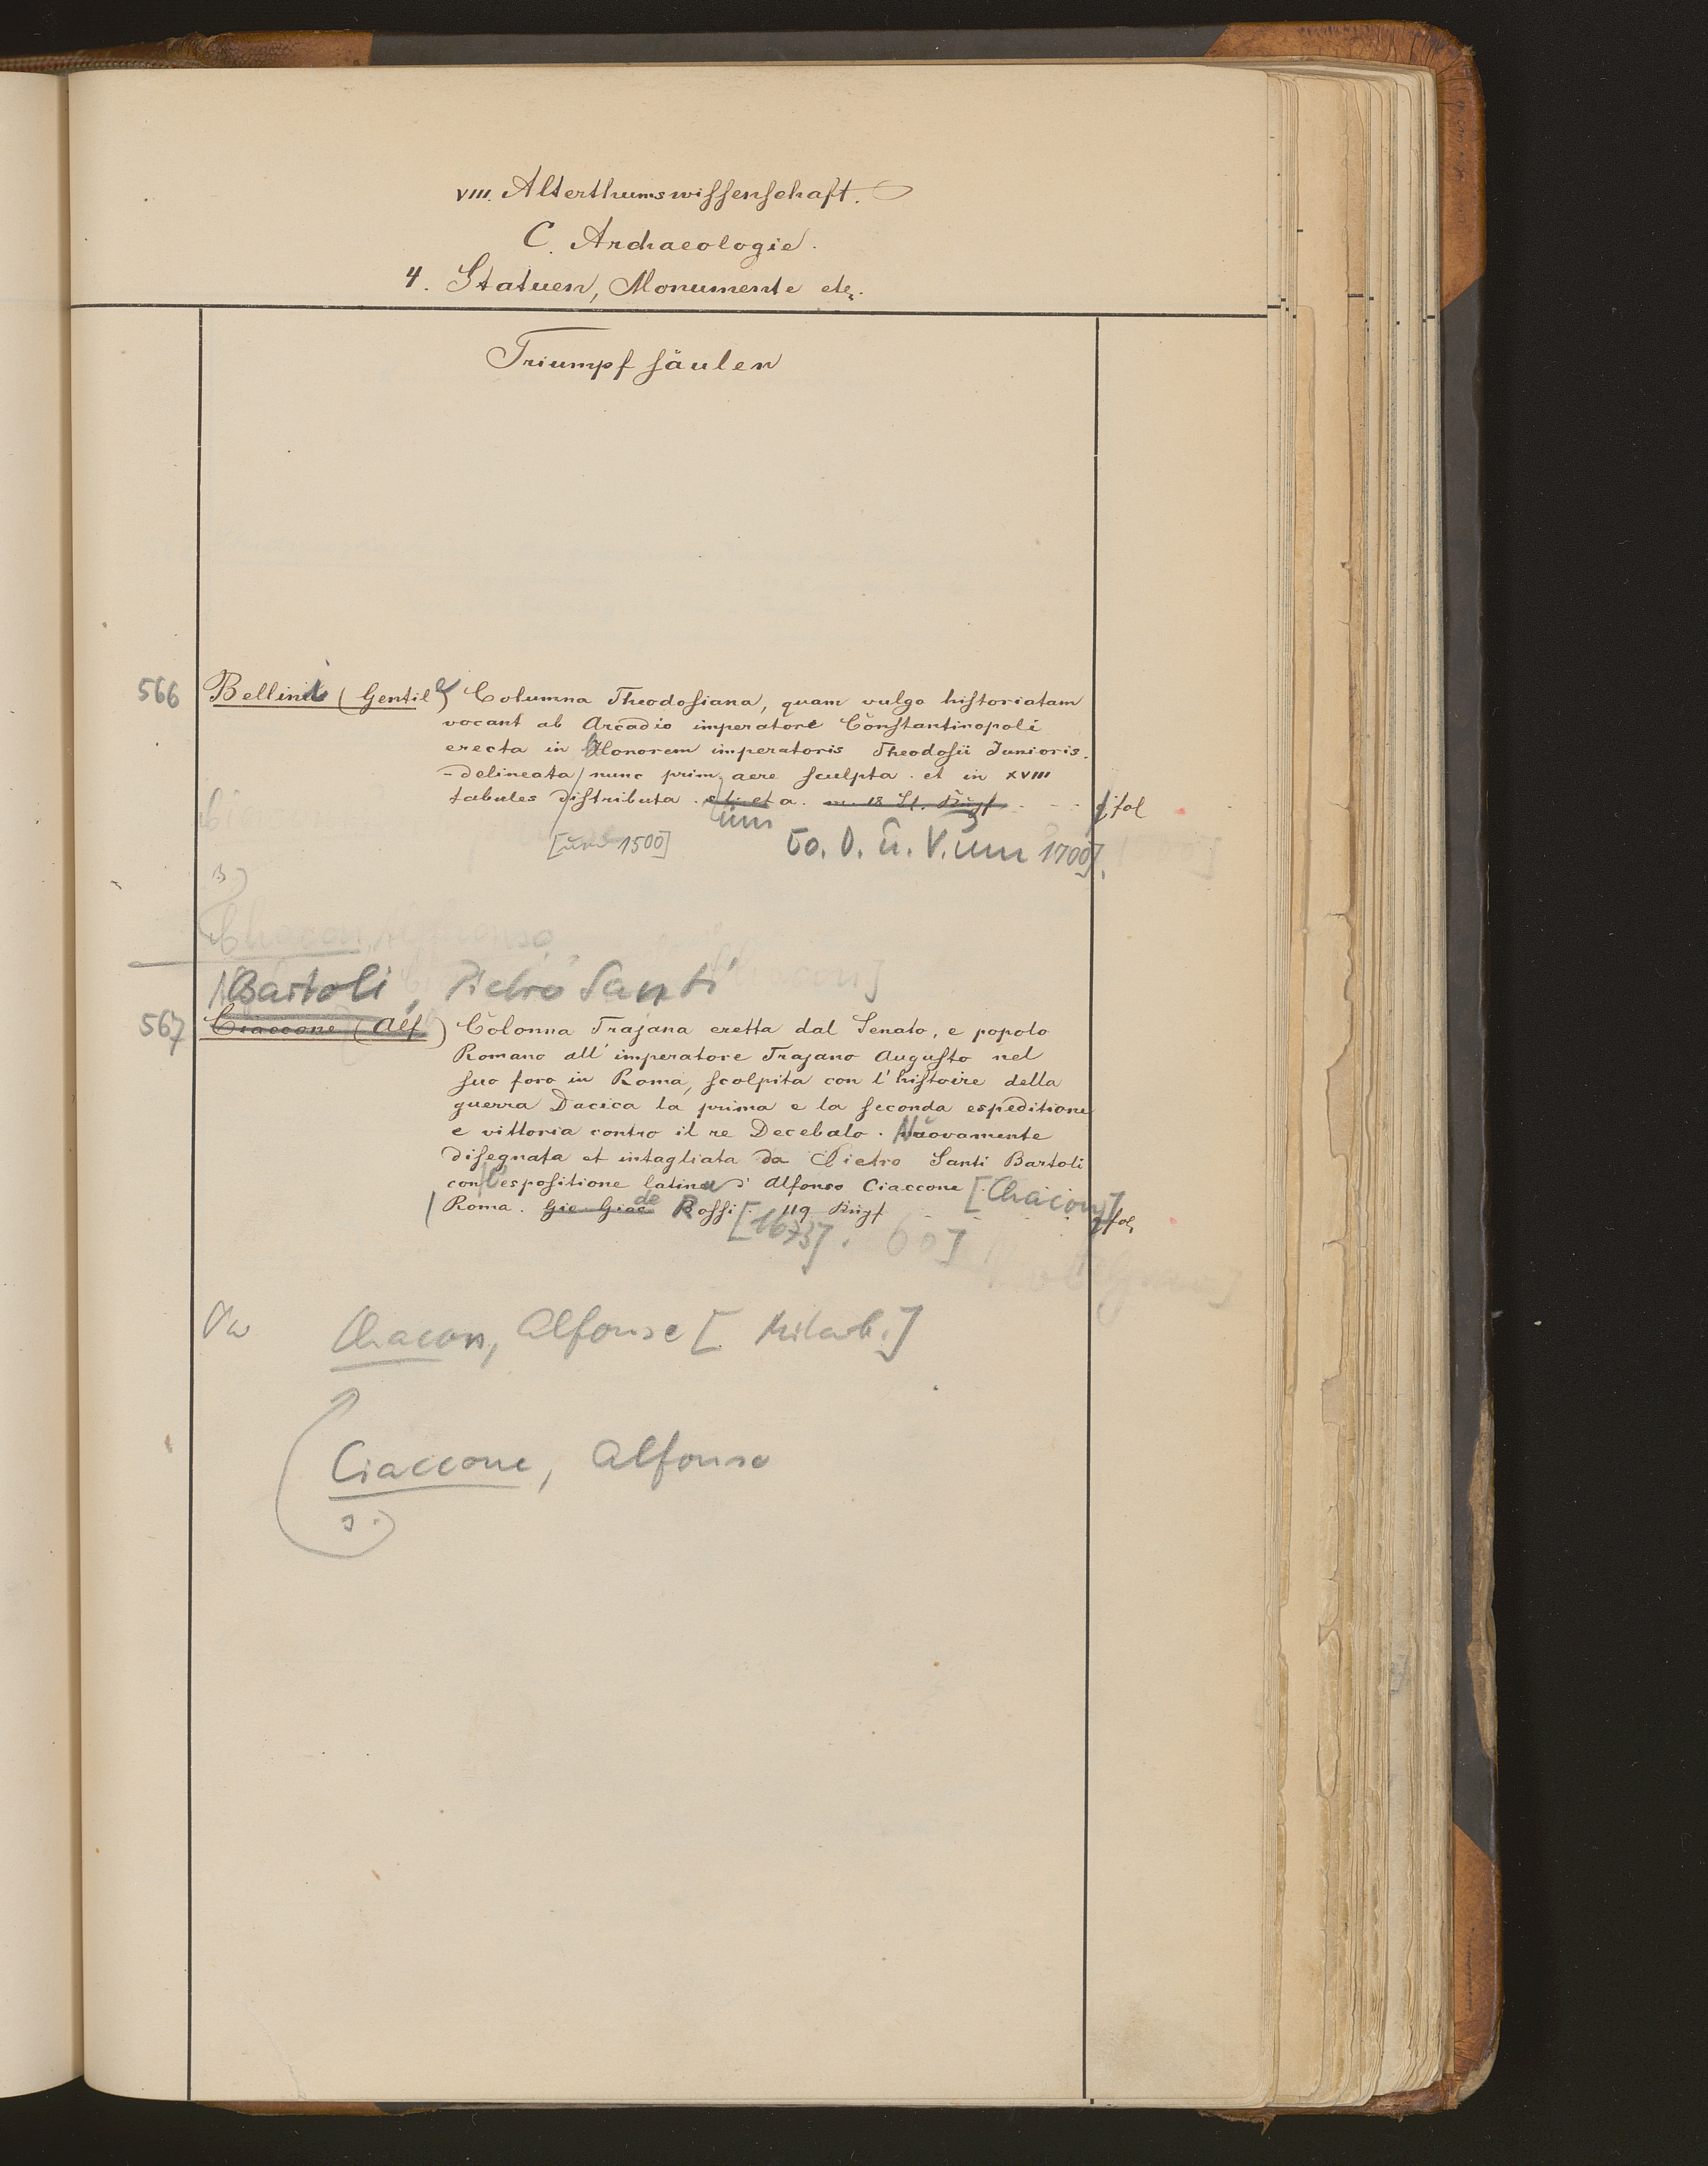 VIII. Alterthumswissenschaft.
C. Archaeologie.
4. Statuen, Monumente etc.
Triumpfsäulen
566 Bellini (Gentile) Columna Theodosiana, quam vulgo historiatam
vocant ab Arcadio imperatore Constantinopoli
erecta in honorem imperatoris Theodosii Junioris.
- delineata / nunc prim aere sculpta. et in XVIII
tabules distributa. s. l. et a. m. 18 St. Kupf. fol
um
[um 1500] [o. O. u. V. um 1700].
s.)
Chacon, Alfonso
Bartoli, Pietro Santi
567 Ciaccone (Alf) Colonna Trajana eretta dal Senato, e popolo
Romano all' imperatore Trajano Augusto nel
suo foro in Roma, scolpita con l' histoire della
guerra Dacica la prima e la seconda espeditione
e vittoria contro il re Decebalo. Nuovamente
disegnata et intagliata da Pietro Santi Bartoli
con l'espositione latina d' Alfonso Ciaccone [Chacon]
Roma. Gio. Giac. de Rossi. [1673]. 119 Kupf gfol
Vw Chacon, Alfonso [Mitarb.]
Ciaccone, Alfonso
s.)